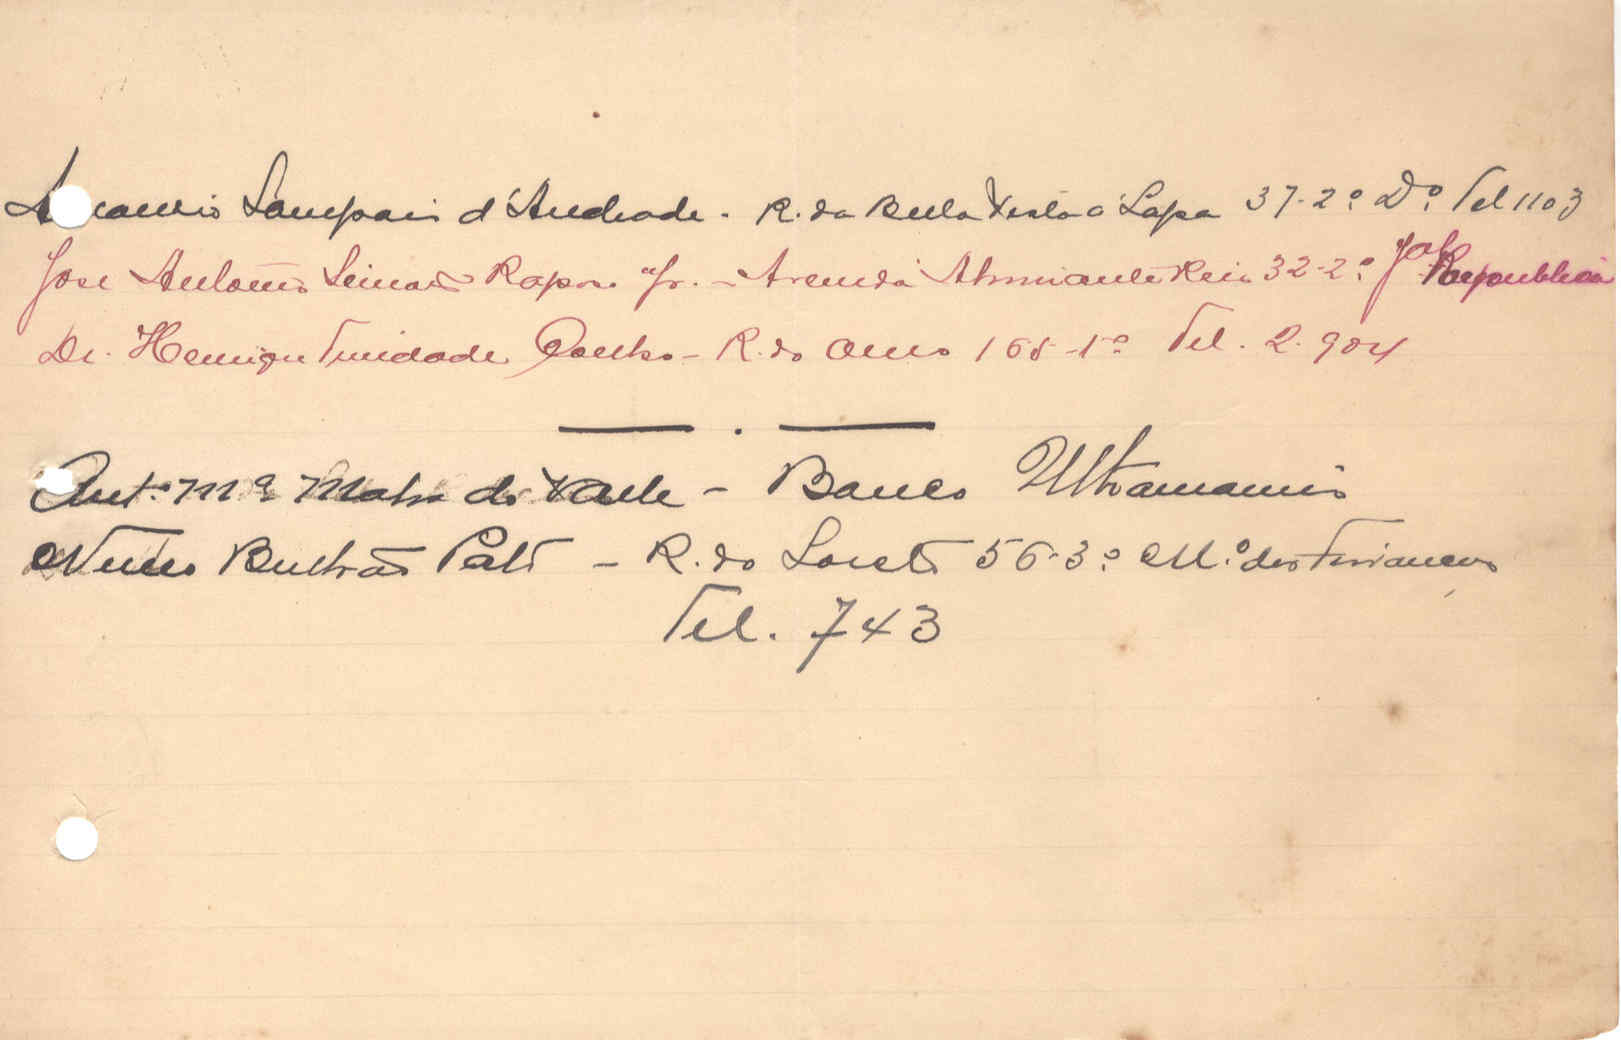 Sampaio d'Andrade - R. da Bella Vista á Lapa 37-2º Dº Tel 1103
José Antonio Raposo Jr. - Avenida Almirante Reis 32-2º Jal Republica
Dr. Henrique Trindade Coelho - R. do Ouro 165-1º Tel. 2.904
Antº Mª Matos do Valle - Banco Ultramarino
Nuno Bulhão Pato - R. do Loreto 56-3º Mº dos
Tel. 743